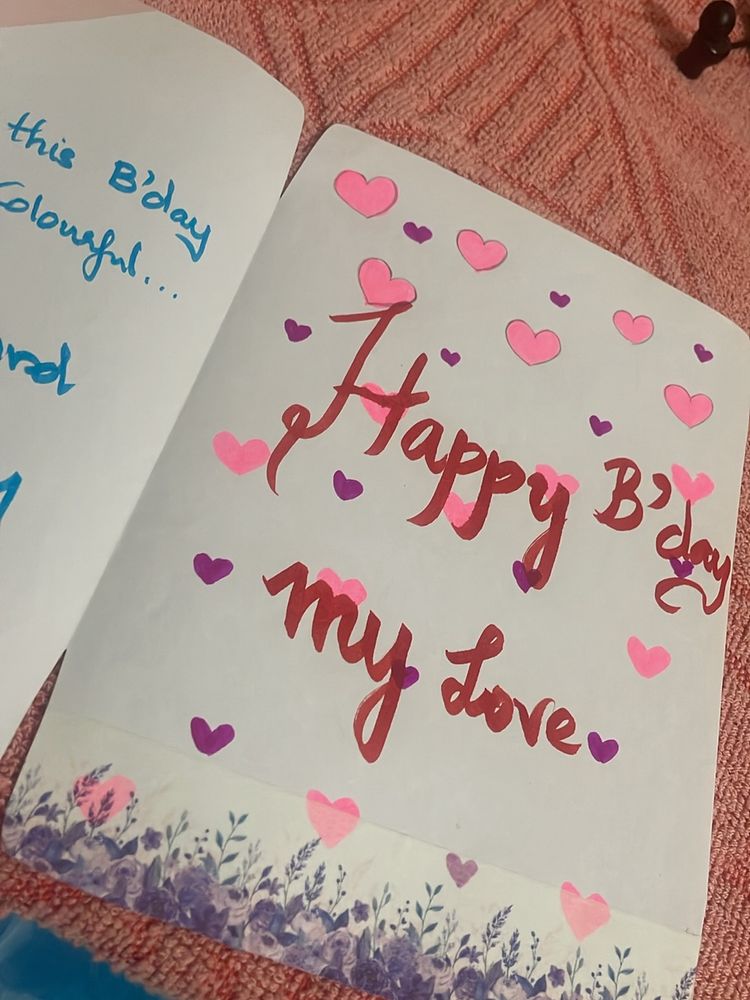 this B'day
Colourful...
Happy B'day
my Love